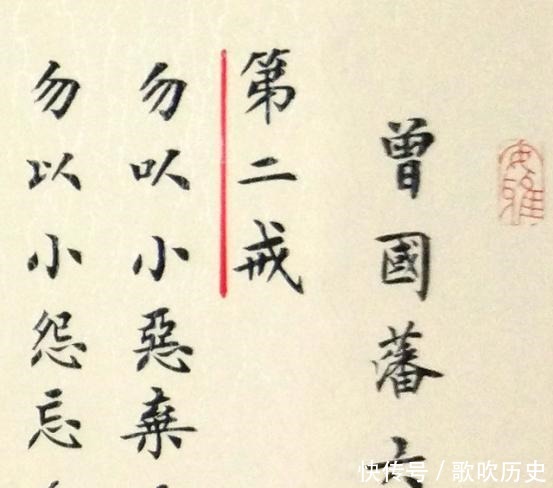 安雅
曾國藩六
第二戒
勿以小惡棄
勿以小怨忘
快传号／歌吹历史